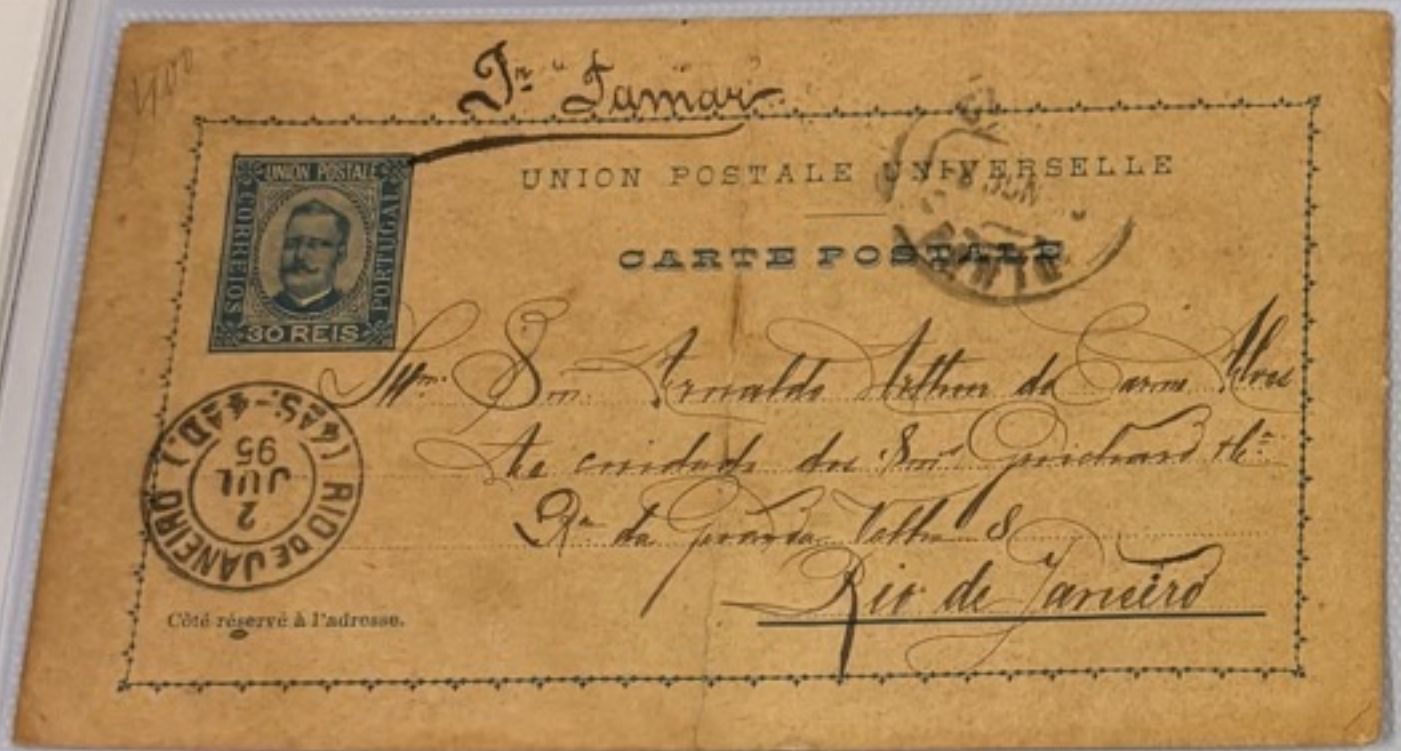 400
Pr "Tamar"
UNION POSTALE
CORREIOS
PORTUGAL
30 REIS
UNION POSTALE UNIVERSELLE
CARTE POSTALE
Illmo. Snr. Arnaldo Arthur do Carmo Alves
Ao cuidado dos Snrs Guichard & Ca
Ra da Guarda Velha 8
Rio de Janeiro
RIO DE JANEIRO
2
JUL
95
Côté réservé à l'adresse.